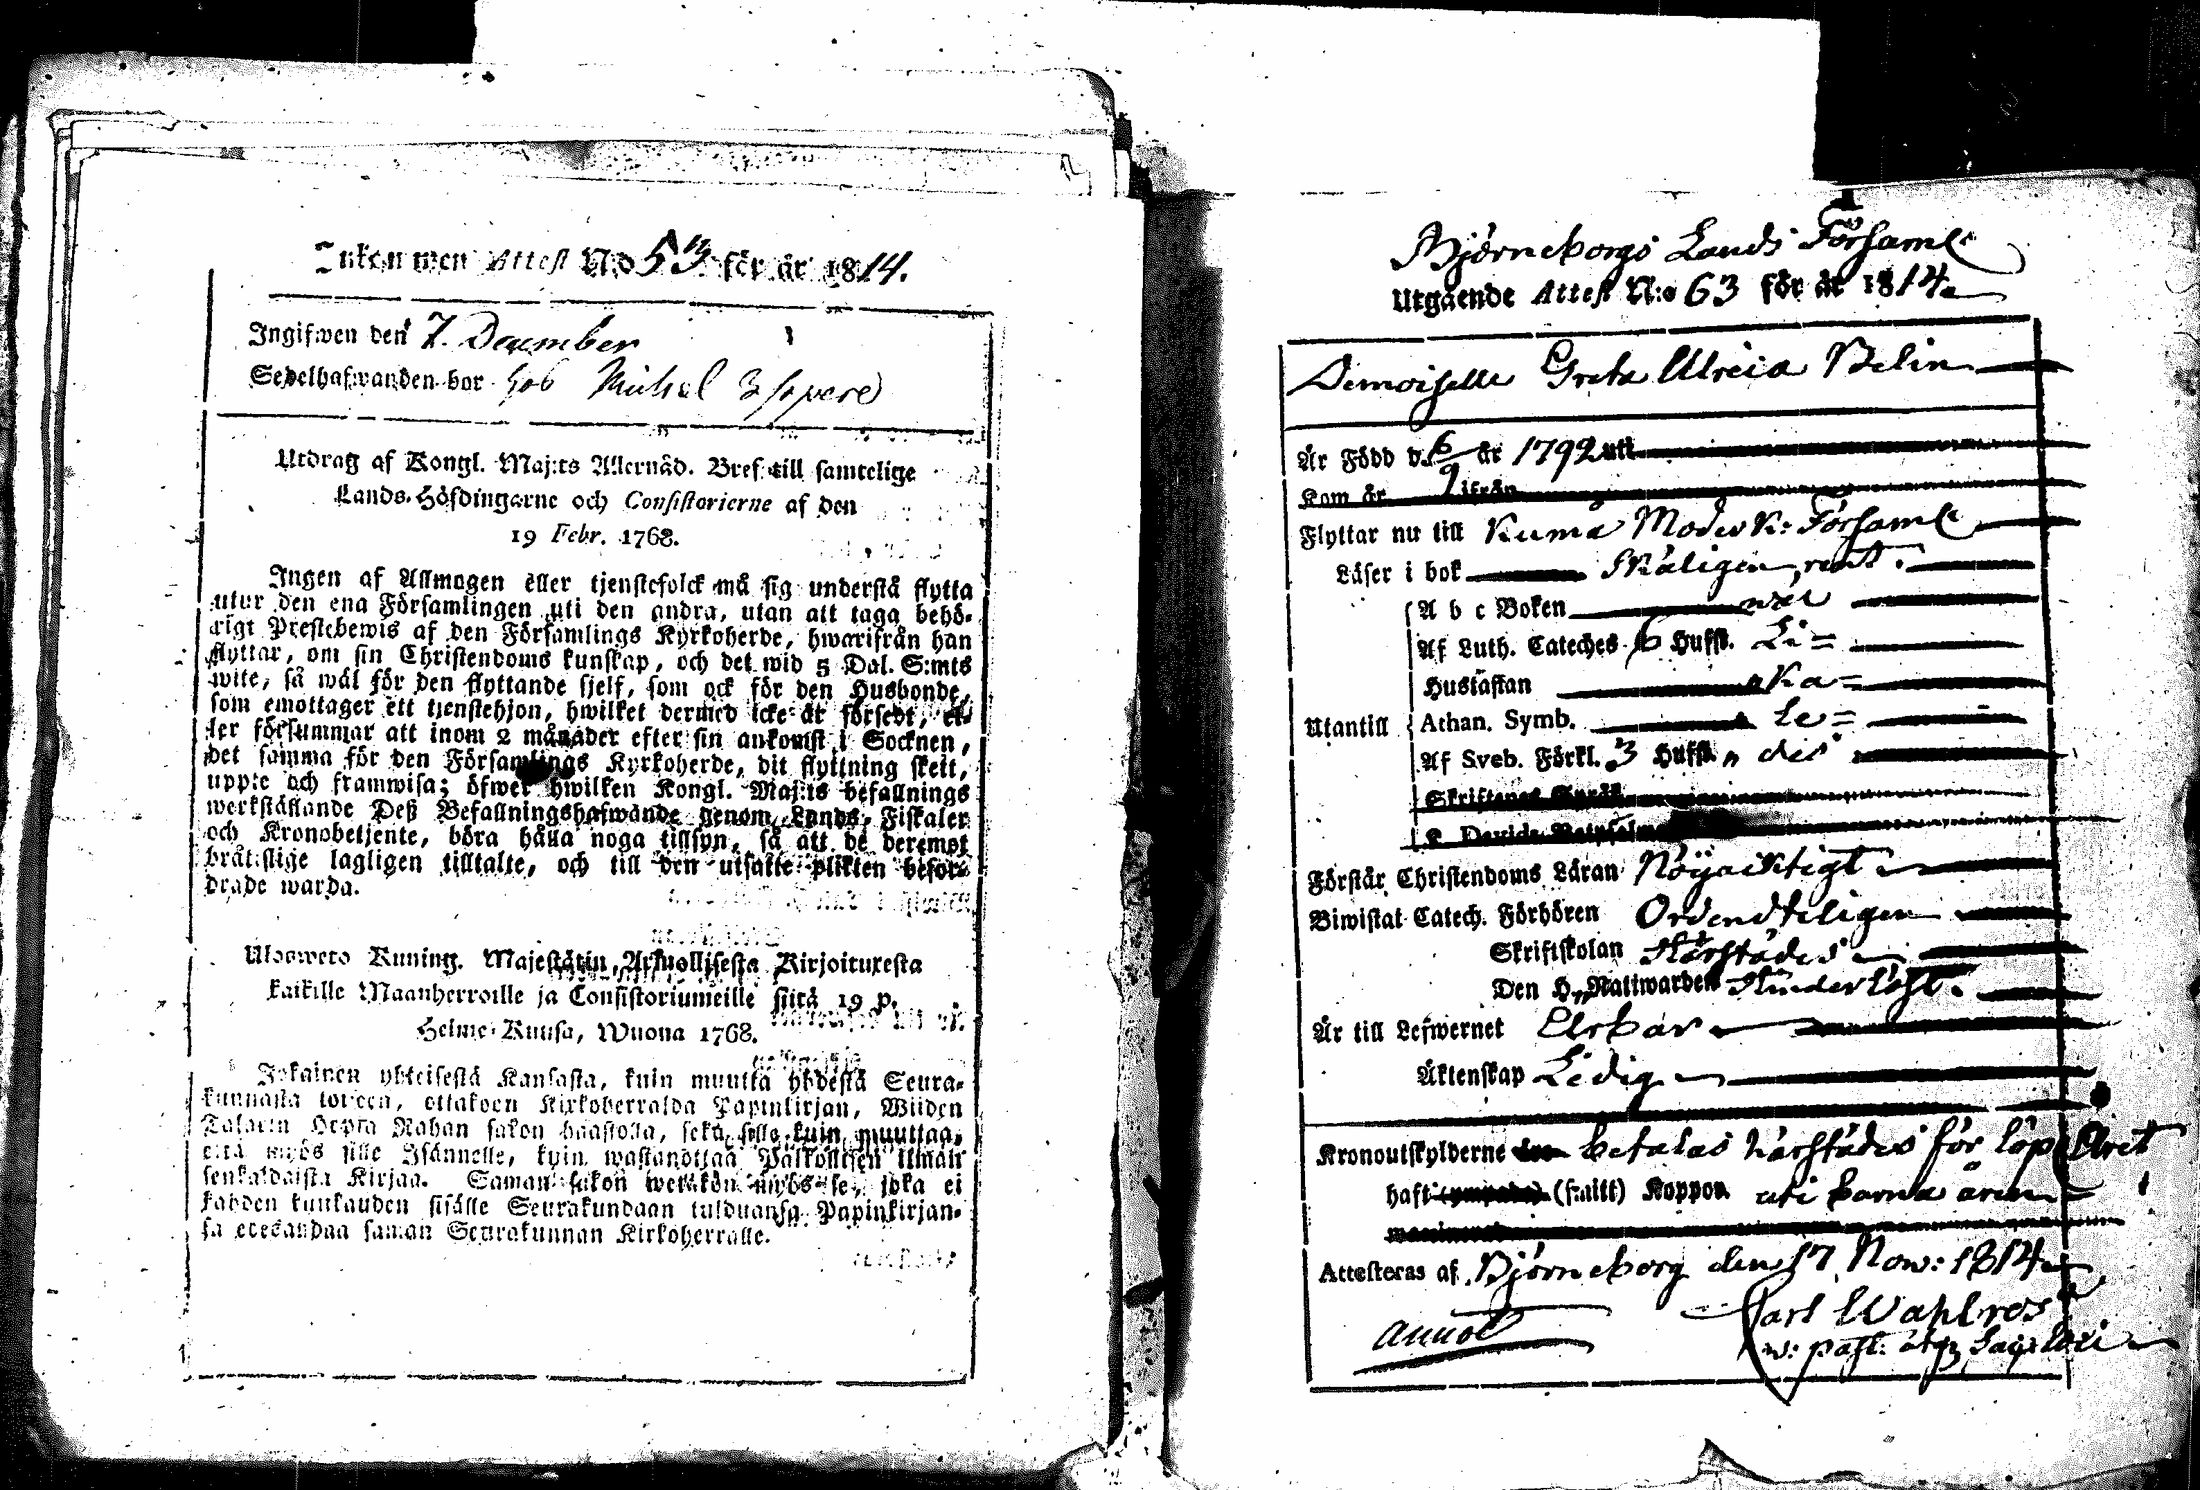 Inkommen Attest No 53 för år 1814.
Ingifwen den 7. December
Sedelhafwanden bor hos Michel
Utdrag af Kongl. Maj:ts Allernåd. Bref till samtelige
Lands-Höfdingarne och Consistorierne af den
19 Febr. 1768.
Ingen af Allmogen eller tjenstefolck må sig understå flytta
utur den ena Församlingen uti den andra, utan att taga behö-
rigt Prestebewis af den Församlings Kyrkoherde, hwarifrån han
flyttar, om sin Christendoms kunskap, och det wid 5 Dal. S:mts
wite, så wäl för den flyttande sjelf, som ock för den Husbonde,
som emottager ett tjenstehjon, hwilket dermed icke är försedt, el-
ler försummar att inom 2 månader efter sin ankomst i Socknen,
det samma för den Församlings Kyrkoherde, dit flyttning skett,
uppte och framwisa; öfwer hwilken Kongl. Maj:ts befallnings
werkställande Deß Befallningshafwande genom Lands-Fiskaler
och Kronobetjente, böra hålla noga tillsyn, så att de deremot
bråtslige lagligen tilltalte, och till den utsatte plikten befor-
drade warda.
Ulosweto Kuning. Majestätin, Armollisesta Kirjoituxesta
kaikille Maanherroille ja Consistoriumeille siitä 19 p.
Helme-Kuusa, Wuona 1768.
Jokainen yhteisestä Kansasta, kuin muutta yhdestä Seura-
kunnasta toiseen, ottakoon Kirkoherralda Papinkirjan, Wiiden
Talarin Hopia Rahan sakon haastolla, sekä sille kuin muuttaa,
että myös sille Isännelle, kuin wastanottaa Palkollisen ilman
senkaldaista Kirjaa. Saman sakon wetäkön myös se, joka ei
kahden kuukauden sisälle Seurakundaan tulduansa Papinkirjan-
sa edesandaa saman Seurakunnan Kirkoherralle.
Björneborgs Lands Församl
Utgående Attest N:o 63 för år 1814
Demoiselle Greta Ulrica Belin
Är Född d. 6/9 år 1792 uti
Kom år ifrån
Flyttar nu till Kumo Moder K: Församl
Läser i bok Skäligen rent.
A b c Boken wäl
Af Luth. Cateches 6 Hufst. Li=
Hustaflan ka=
Utantill Athan. Symb. le=
Af Sveb. Förkl. 3 Hufst. des
Skriftenes Språk
Förstår Christendoms Läran Nöjacktigt
Biwistat Catech. Förhören Ordendteligen
Skriftskolan Härstädes
Den H. Nattwarden Hinderlöst.
Är till Lefwernet Ärbar
Äktenskap Ledig
Kronoutskylderne betalas härstädes för löp. Året
haft (smitt) Koppor uti barna åren
Attesteras af Björneborg den 17 Now: 1814
Carl Wahlroos
w: past: